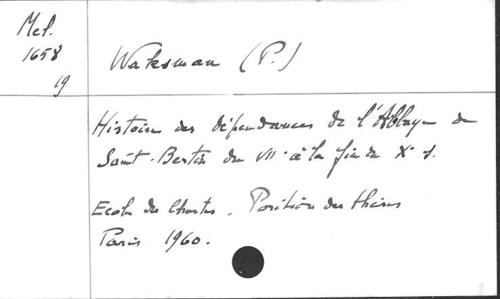 Mel.
1658
19
Waksman (P.)
Histoire des dépendances de l'Abbaye de
Saint-Bertin du VII à la fin du X s.
Ecole des Chartes. Position des thèses
Paris 1960.